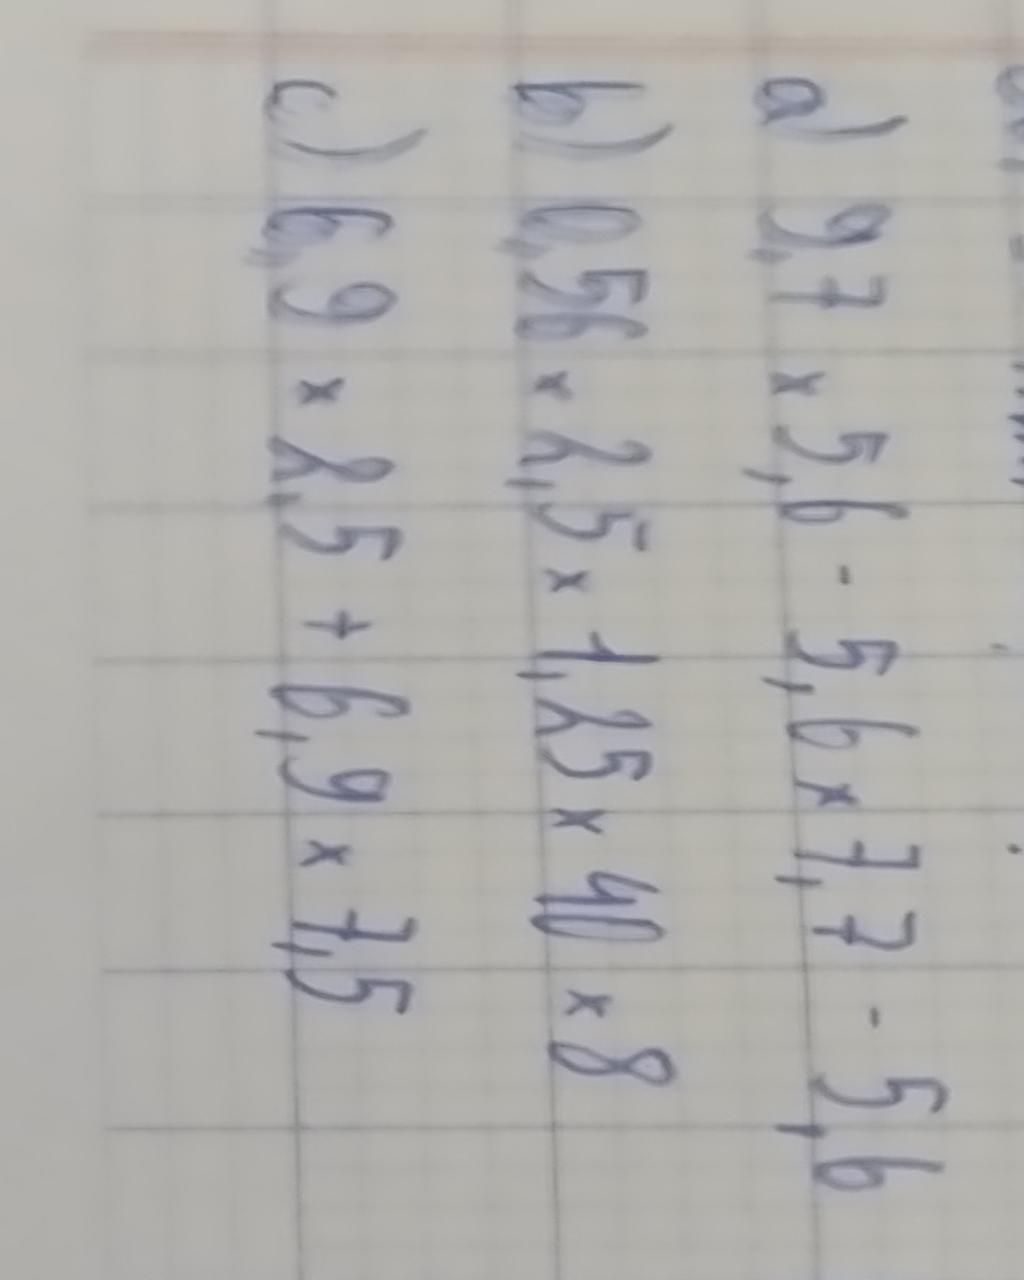 a) 9,7 x 5,6 - 5,6 x 7,7 - 5,6
b) 0,56 x 2,5 x 1,25 x 40 x 8
c) 6,9 x 2,5 + 6,9 x 7,5